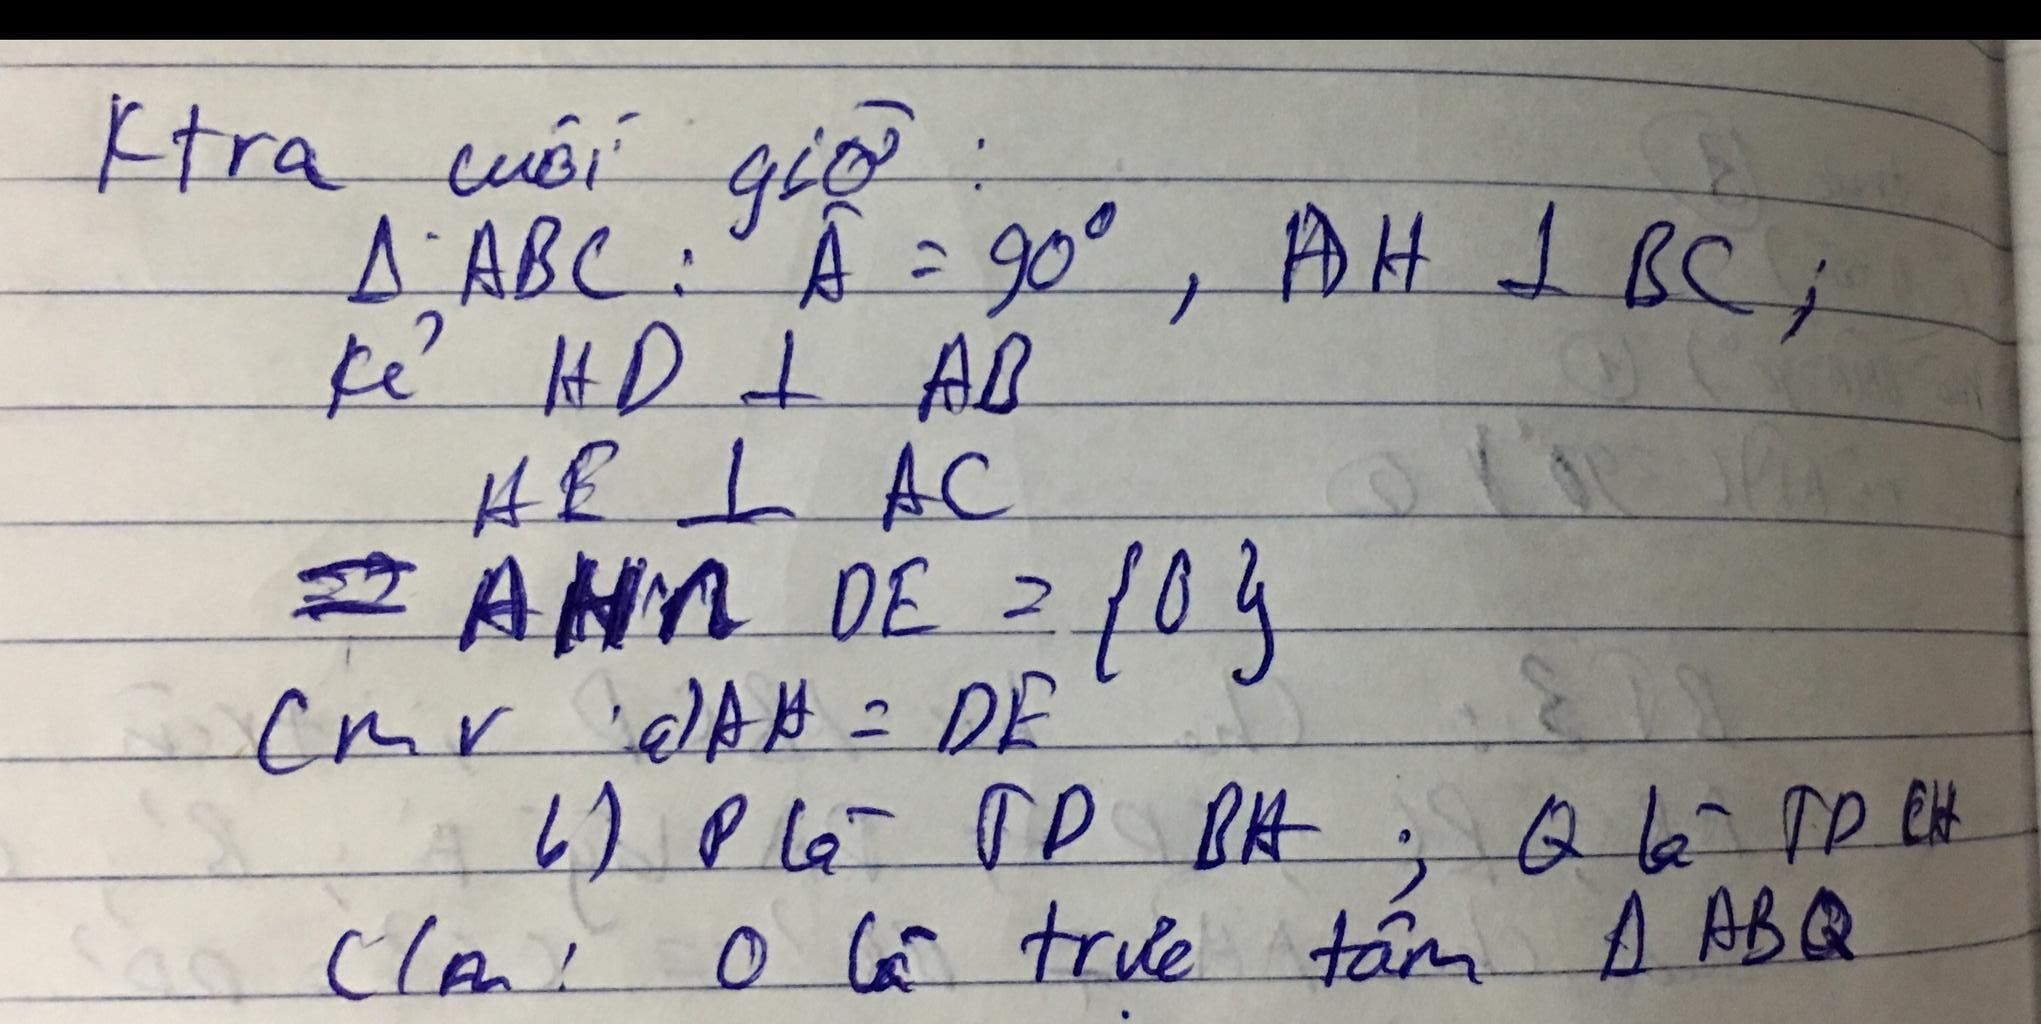 Ktra cuối giờ :
Δ ABC : Â = 90° , AH ⊥ BC ;
Kẻ HD ⊥ AB
HE ⊥ AC
AH ∩ DE = {O}
Cmr : a) AH = DE
b) P là TD BH ; Q là TD CH
C/m : O là trực tâm Δ ABQ